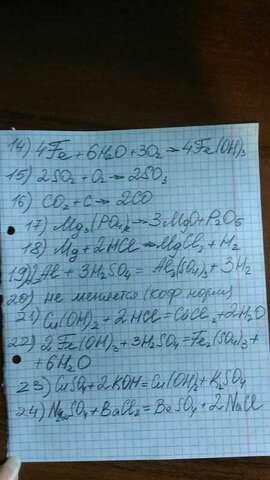 14) 4Fe + 6H₂O + 3O₂ → 4Fe(OH)₃
15) 2SO₂ + O₂ → 2SO₃
16) CO₂ + C → 2CO
17) Mg₃(PO₄)₂ → 3MgO + P₂O₅
18) Mg + 2HCl → MgCl₂ + H₂
19) 2Al + 3H₂SO₄ = Al₂(SO₄)₃ + 3H₂
20) не меняется (коф. норм)
21) Cu(OH)₂ + 2HCl = CuCl₂ + 2H₂O
22) 2Fe(OH)₃ + 3H₂SO₄ = Fe₂(SO₄)₃ +
+ 6H₂O
23) CuSO₄ + 2KOH = Cu(OH)₂ + K₂SO₄
24) Na₂SO₄ + BaCl₂ = BaSO₄ + 2NaCl